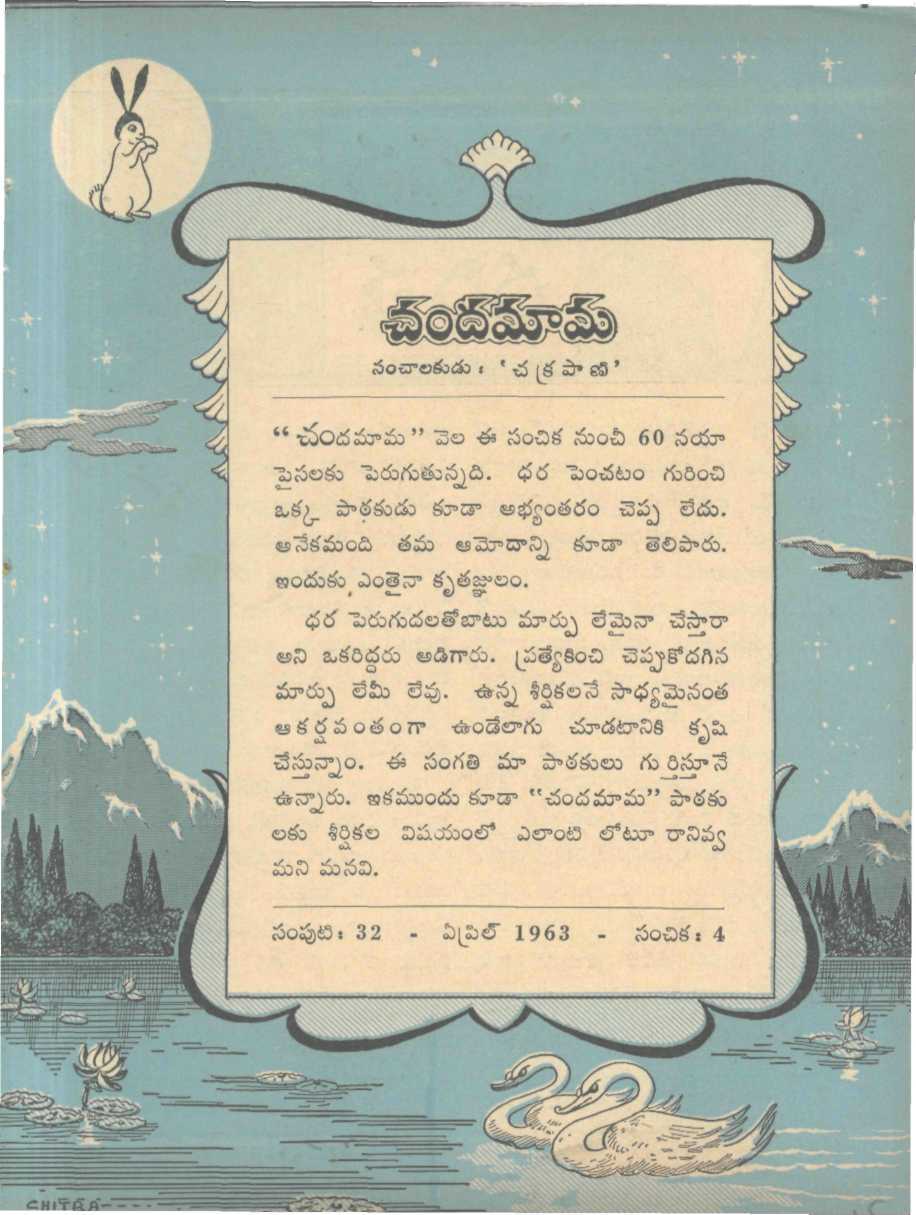 చందమామ
సంచాలకుడు : ‘చక్రపాణి’
“చందమామ” వెల ఈ సంచిక నుంచీ 60 నయా
పైసలకు పెరుగుతున్నది. ధర పెంచటం గురించి
ఒక్క పాఠకుడు కూడా అభ్యంతరం చెప్ప లేదు.
అనేకమంది తమ ఆమోదాన్ని కూడా తెలిపారు.
ఇందుకు ఎంతైనా కృతజ్ఞులం.
ధర పెరుగుదలతోబాటు మార్పు లేమైనా చేస్తారా
అని ఒకరిద్దరు అడిగారు. ప్రత్యేకించి చెప్పుకోదగిన
మార్పు లేమీ లేవు. ఉన్న శీర్షికలనే సాధ్యమైనంత
ఆకర్షవంతంగా ఉండేలాగు చూడటానికి కృషి
చేస్తున్నాం. ఈ సంగతి మా పాఠకులు గుర్తిస్తూనే
ఉన్నారు. ఇకముందు కూడా “చందమామ” పాఠకు
లకు శీర్షికల విషయంలో ఎలాంటి లోటూ రానివ్వ
మని మనవి.
సంపుటి : 32 - ఏప్రిల్ 1963 - సంచిక : 4
CHITRA